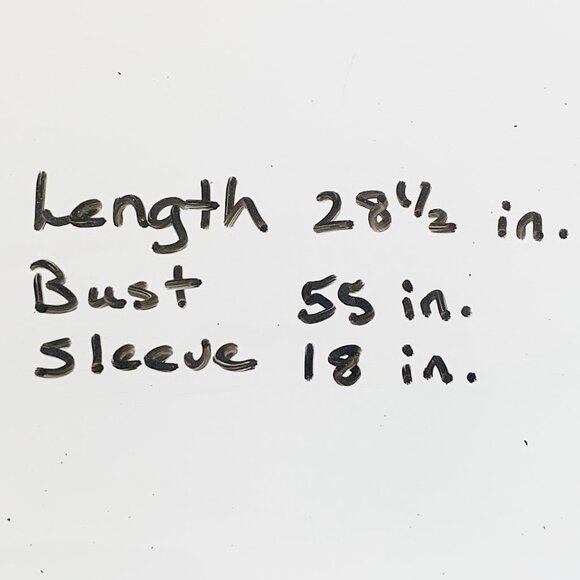 Length 28 1/2 in.
Bust 55 in.
Sleeve 18 in.